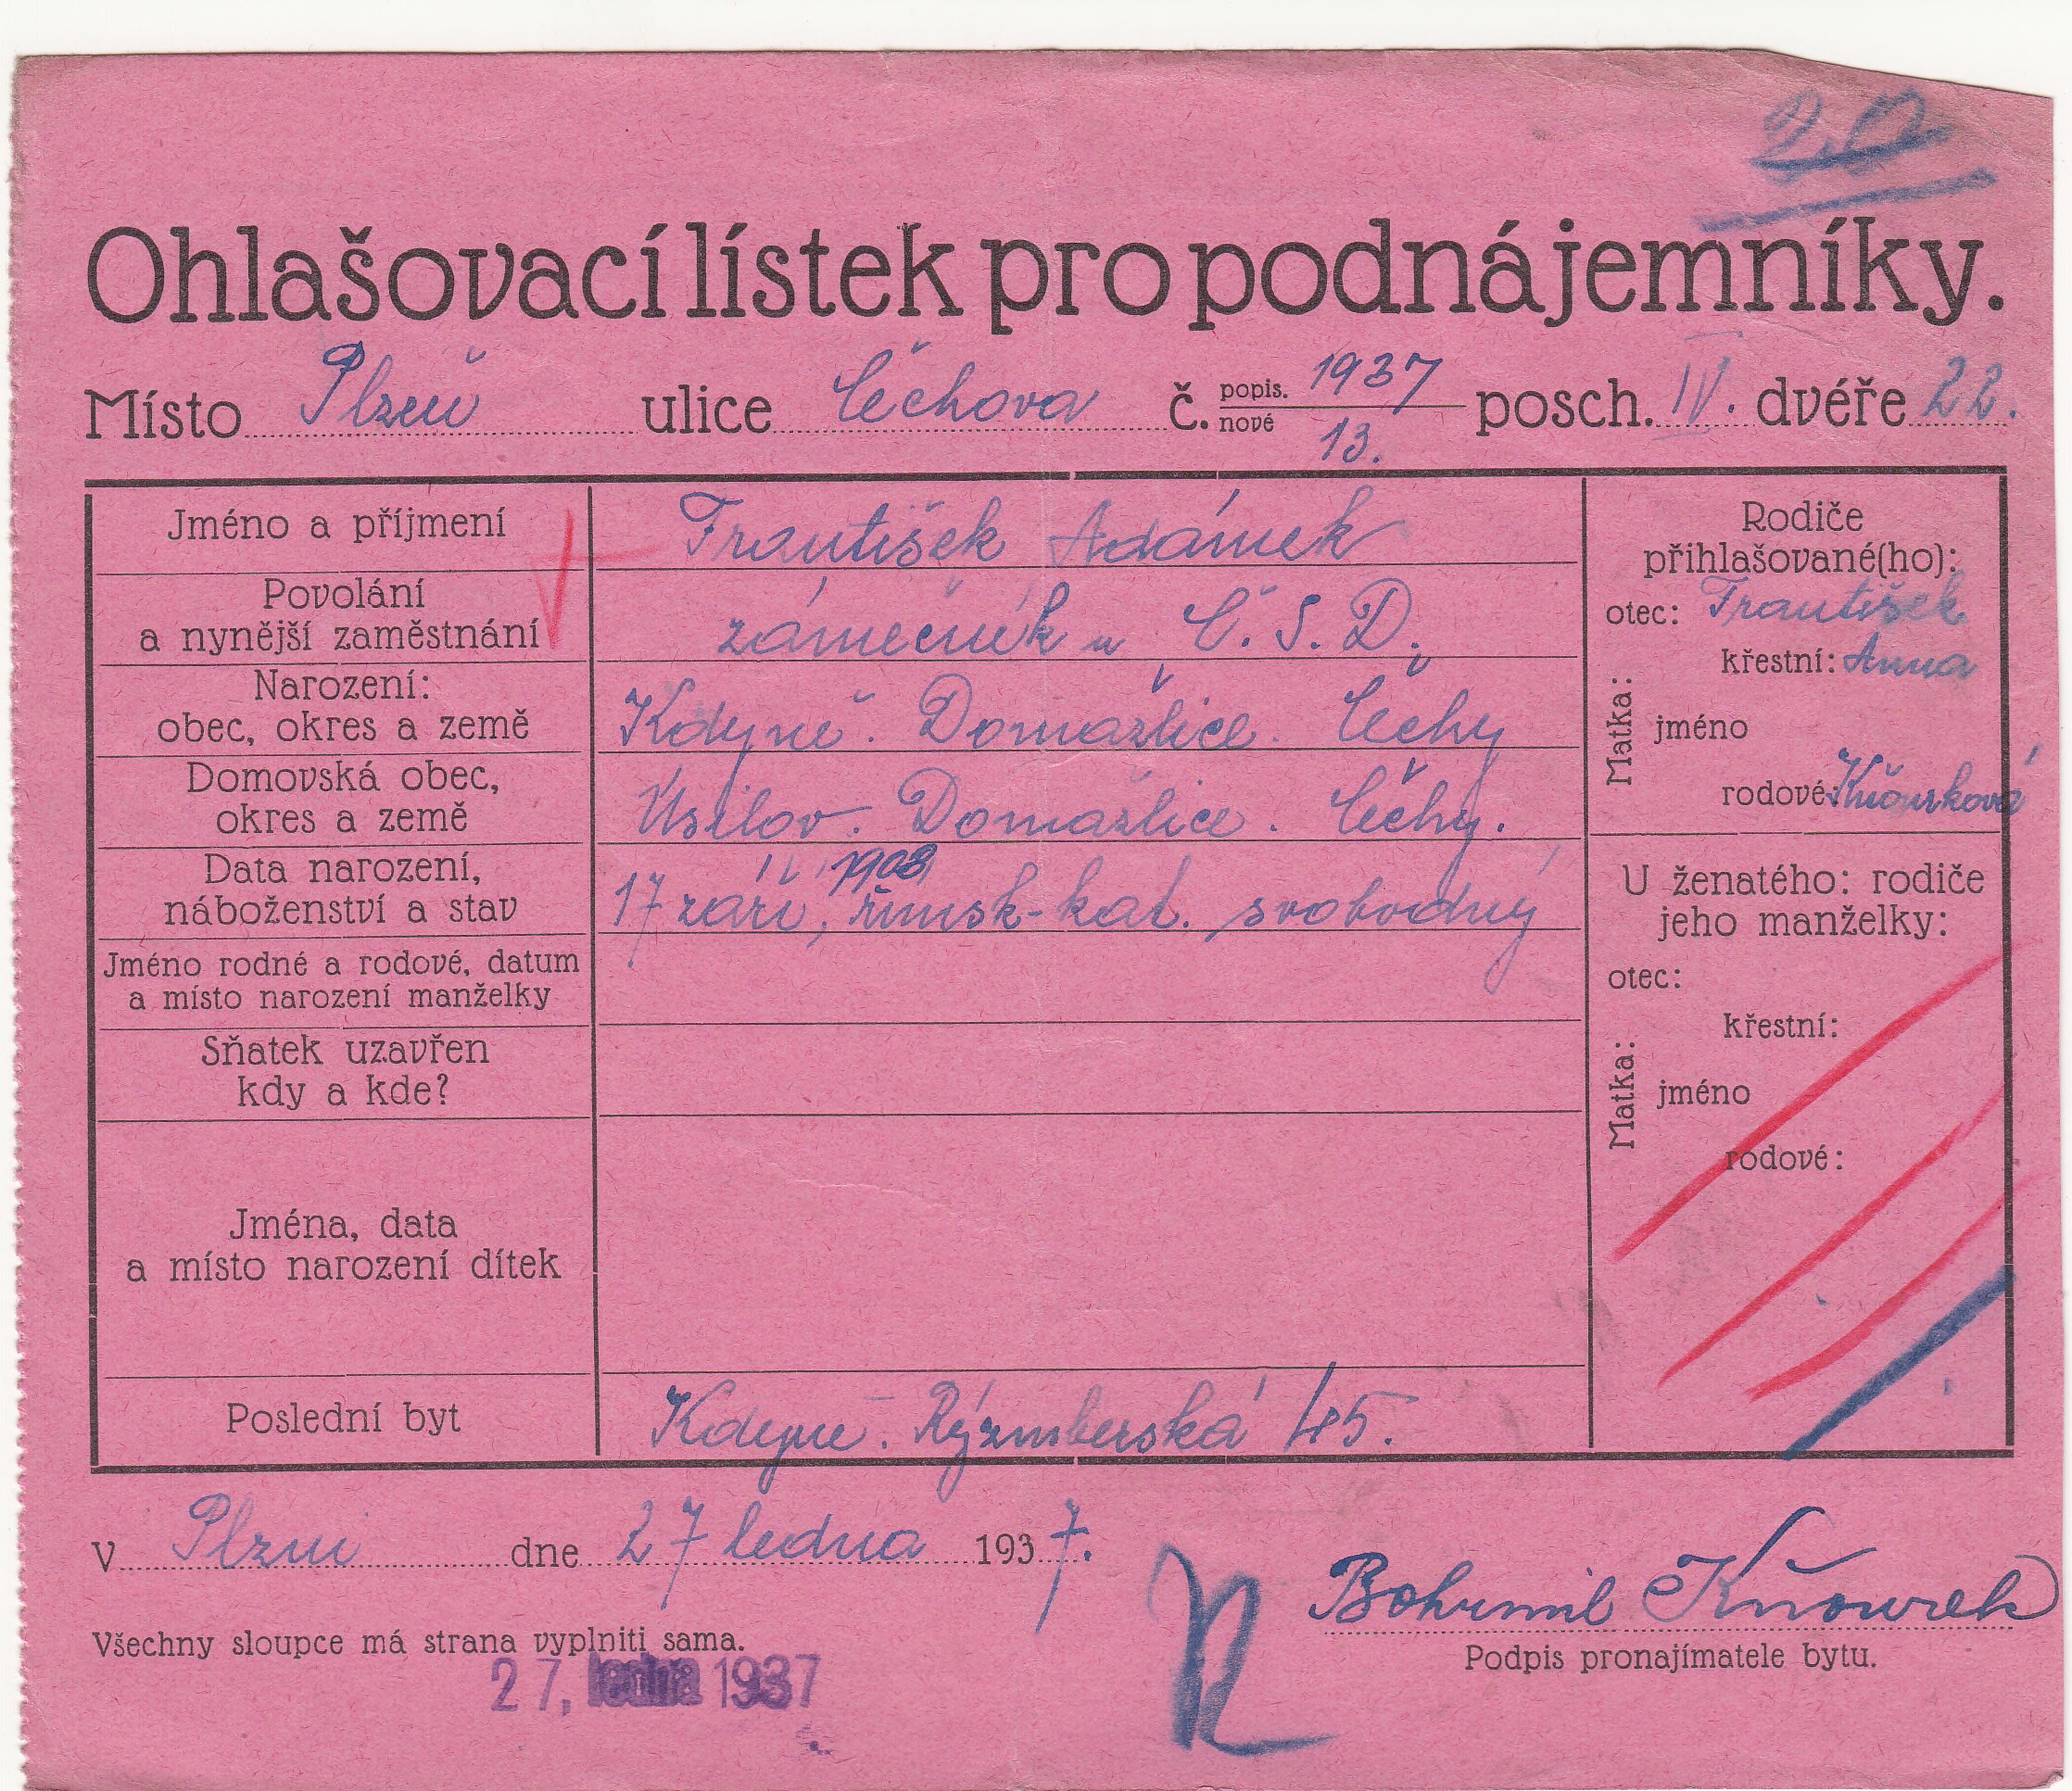 20
Ohlašovací lístek pro podnájemníky.
Místo Plzeň ulice Čechova č. popis. 1937 nové 13. posch. IV. dvéře 22.
Jméno a příjmení František Adámek
Povolání
a nynější zaměstnání zámečník u Č.S.D.
Narození:
obec, okres a země Kdyně. Domažlice. Čechy
Domovská obec,
okres a země Úsilov. Domažlice. Čechy.
Data narození,
náboženství a stav 17 září, 1908 římsk-kat. svobodný
Jméno rodné a rodové, datum
a místo narození manželky
Sňatek uzavřen
kdy a kde?
Jména, data
a místo narození dítek
Poslední byt Kdyně. Rýzmberská 45.
Rodiče
přihlašované(ho):
otec: František
Matka:
křestní: Anna
jméno
rodové: Kňourková
U ženatého: rodiče
jeho manželky:
otec:
Matka:
křestní:
jméno
rodové:
V Plzni dne 27 ledna 1937.
Bohumil Kňourek
Všechny sloupce má strana vyplniti sama.
Podpis pronajímatele bytu.
27. ledna 1937